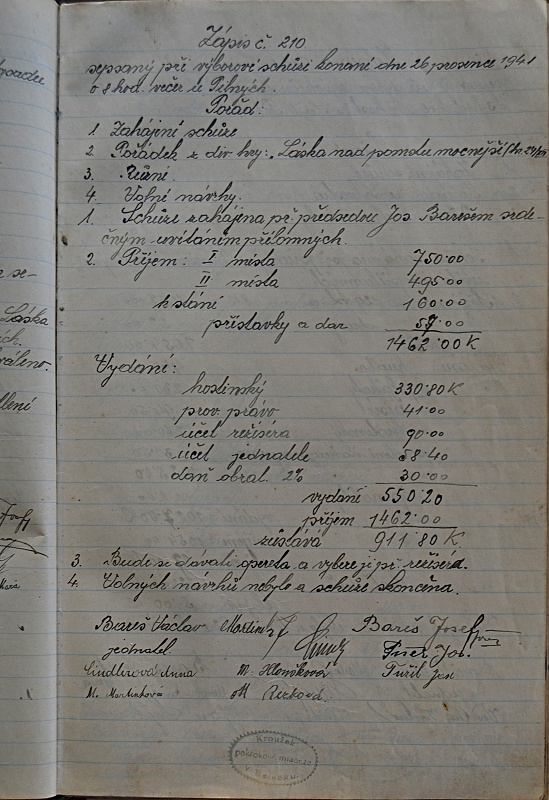 Zápis č. 210
sepsaný při výborové schůzi konané dne 26 prosince 1941
o 8 hod. večer u Pilných.
Pořad:
1 Zahájení schůze
2. Pořádek z div. hry: „Láska nad pomstu mocnější
3. Různí.
4. Volné návrhy.
1. Schůze zahájena př předsedou Jos Barešem srde-
čným uvítáním přítomných.
2. Příjem: I místa 750·00
II místa 495·00
k stání 160·00
přístavky a dar 57·00
1462·00 K
Vydání:
hostinský 330·80 K
prov. právo 41·00
účet režiséra 90·00
účet jednatele 58·40
daň obrat. 2% 30·00
vydání 550·20
příjem 1462·00
zůstává 911·80 K
3. Bude se dávati opereta a vybere ji př. režisér.
4. Volných návrhů nebylo a schůze skončena.
Bareš Václav Bareš Josef
jednatel Jos.
Anna M.
M. Martinková
Kroužek
v
Láska